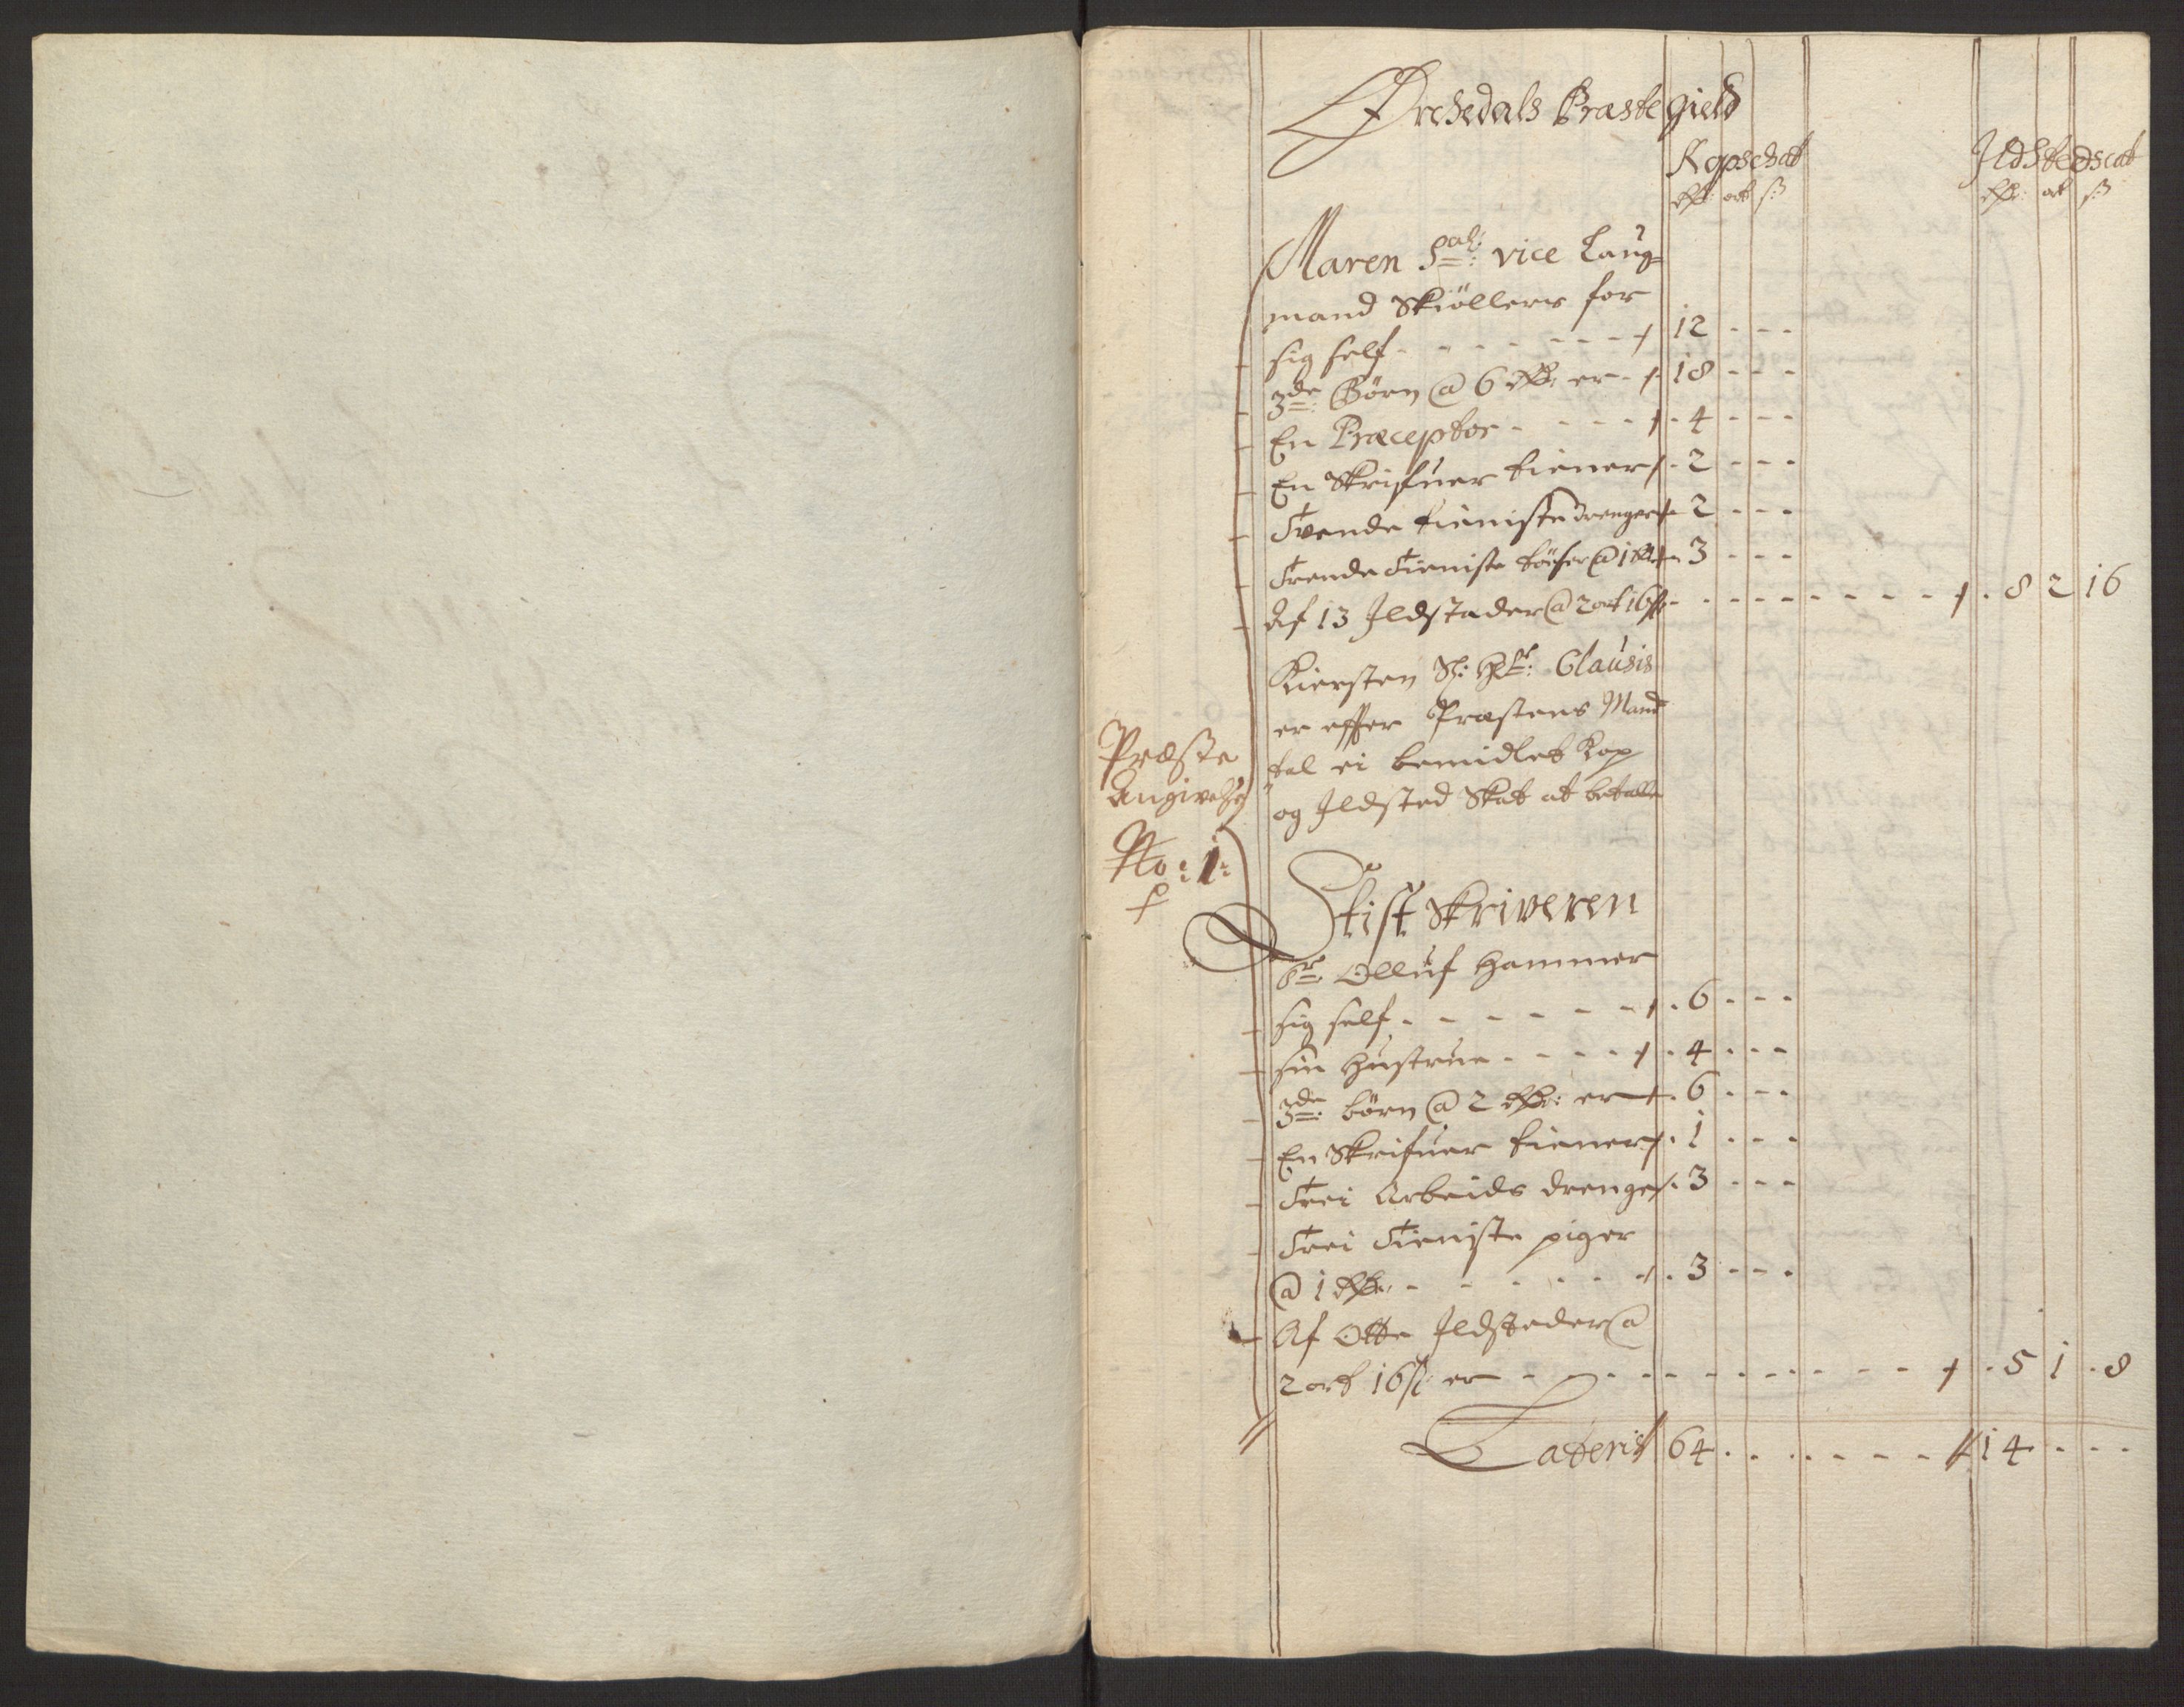 Ørchedals Præstegield
Kopschat Ildstedscat
rdr: ort ß rdr: ort ß
Maren Sal: vice Laug-
mand Skiöllers for
sig self - - - - - - - 12 - - -
3de: Börn @ 6 rdr: er - 18 - - -
En Præceptor - - - - 4 - - -
En Skrifuer tiener - 2 - - -
Tvende tieniste drenger - 2 - - -
Trende Tieniste töser @ 1 rdr - 3 - - -
Af 13 Ildstader @ 2 ort 16 ß - - - - - - - - - - 8 2 16
Kiersten Sl: Hr: Clausis
er effter Præstens Mand
tal ei bemidlet Kop
og Ildsted Skat at betalle
Præste
Angivelse
No: 1:
Stift Skriveren
Sr. Olluf Hammer
sig self - - - - - - 6 - - -
sin Hustrue - - - - 4 - - -
3de: börn @ 2 rdr: er - 6 - - -
En Skrifuer tiener - 1 - - -
Trei Arbeids drenge - 3 - - -
Trei Tieniste piger
@ 1 rdr: - - - - - - 3 - - -
Af Otte Ildsteder @
2 ort 16 ß er - - - - - - - - - - - 5 1 8
Lateris 64 - - - - - - 14 - - -